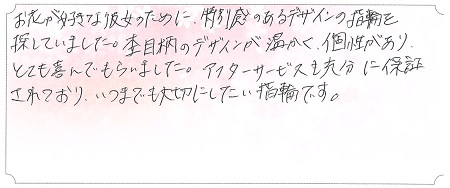 お花が好きな彼女のために、特別感のあるデザインの指輪を
探していました。杢目柄のデザインが温かく、個性があり、
とても喜んでもらいました。アフターサービスも充分に保証
されており、いつまでも大切にしたい指輪です。